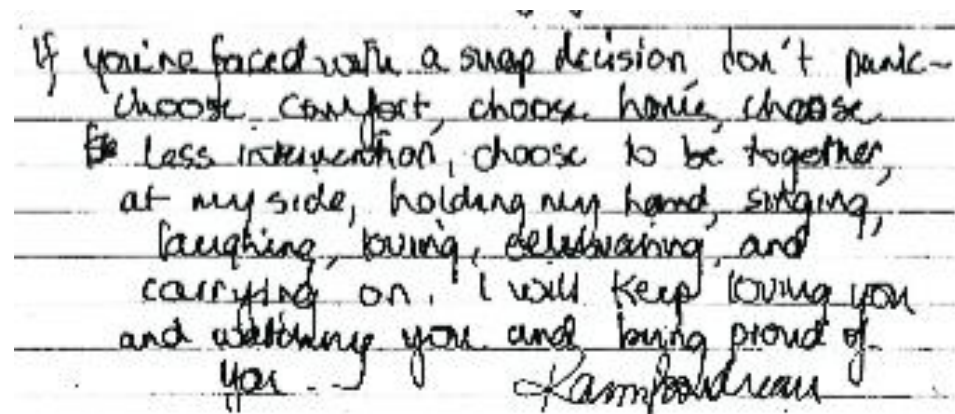 If you're faced with a snap decision, don't panic -
choose comfort, choose home, choose
less intervention, choose to be together,
at my side, holding my hand, singing,
laughing, loving, celebrating, and
carrying on. I will keep loving you
and watching you and being proud of
you.